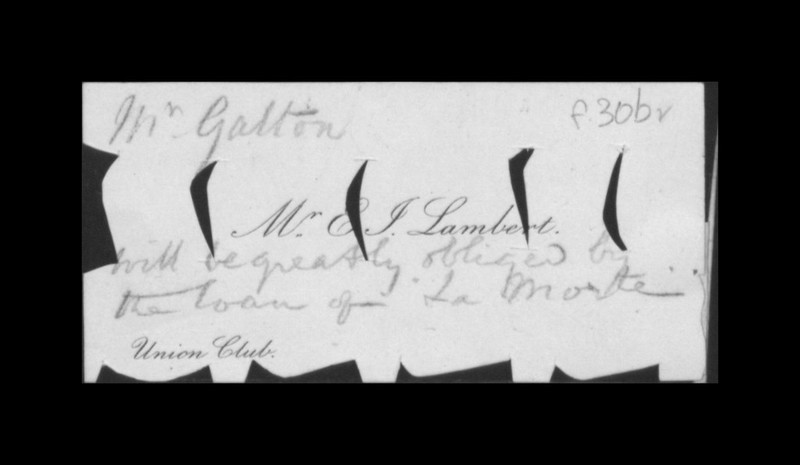 Mr Galton
f.30br
Mr. E. J. Lambert.
will be greatly obliged by
the loan of "La Morte"
Union Club.